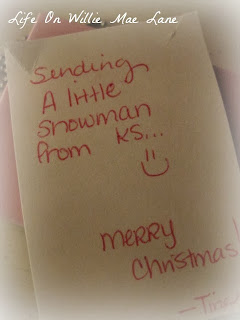 Life On Willie Mae Lane
Sending
A little
snowman
from KS...
merry
christmas!